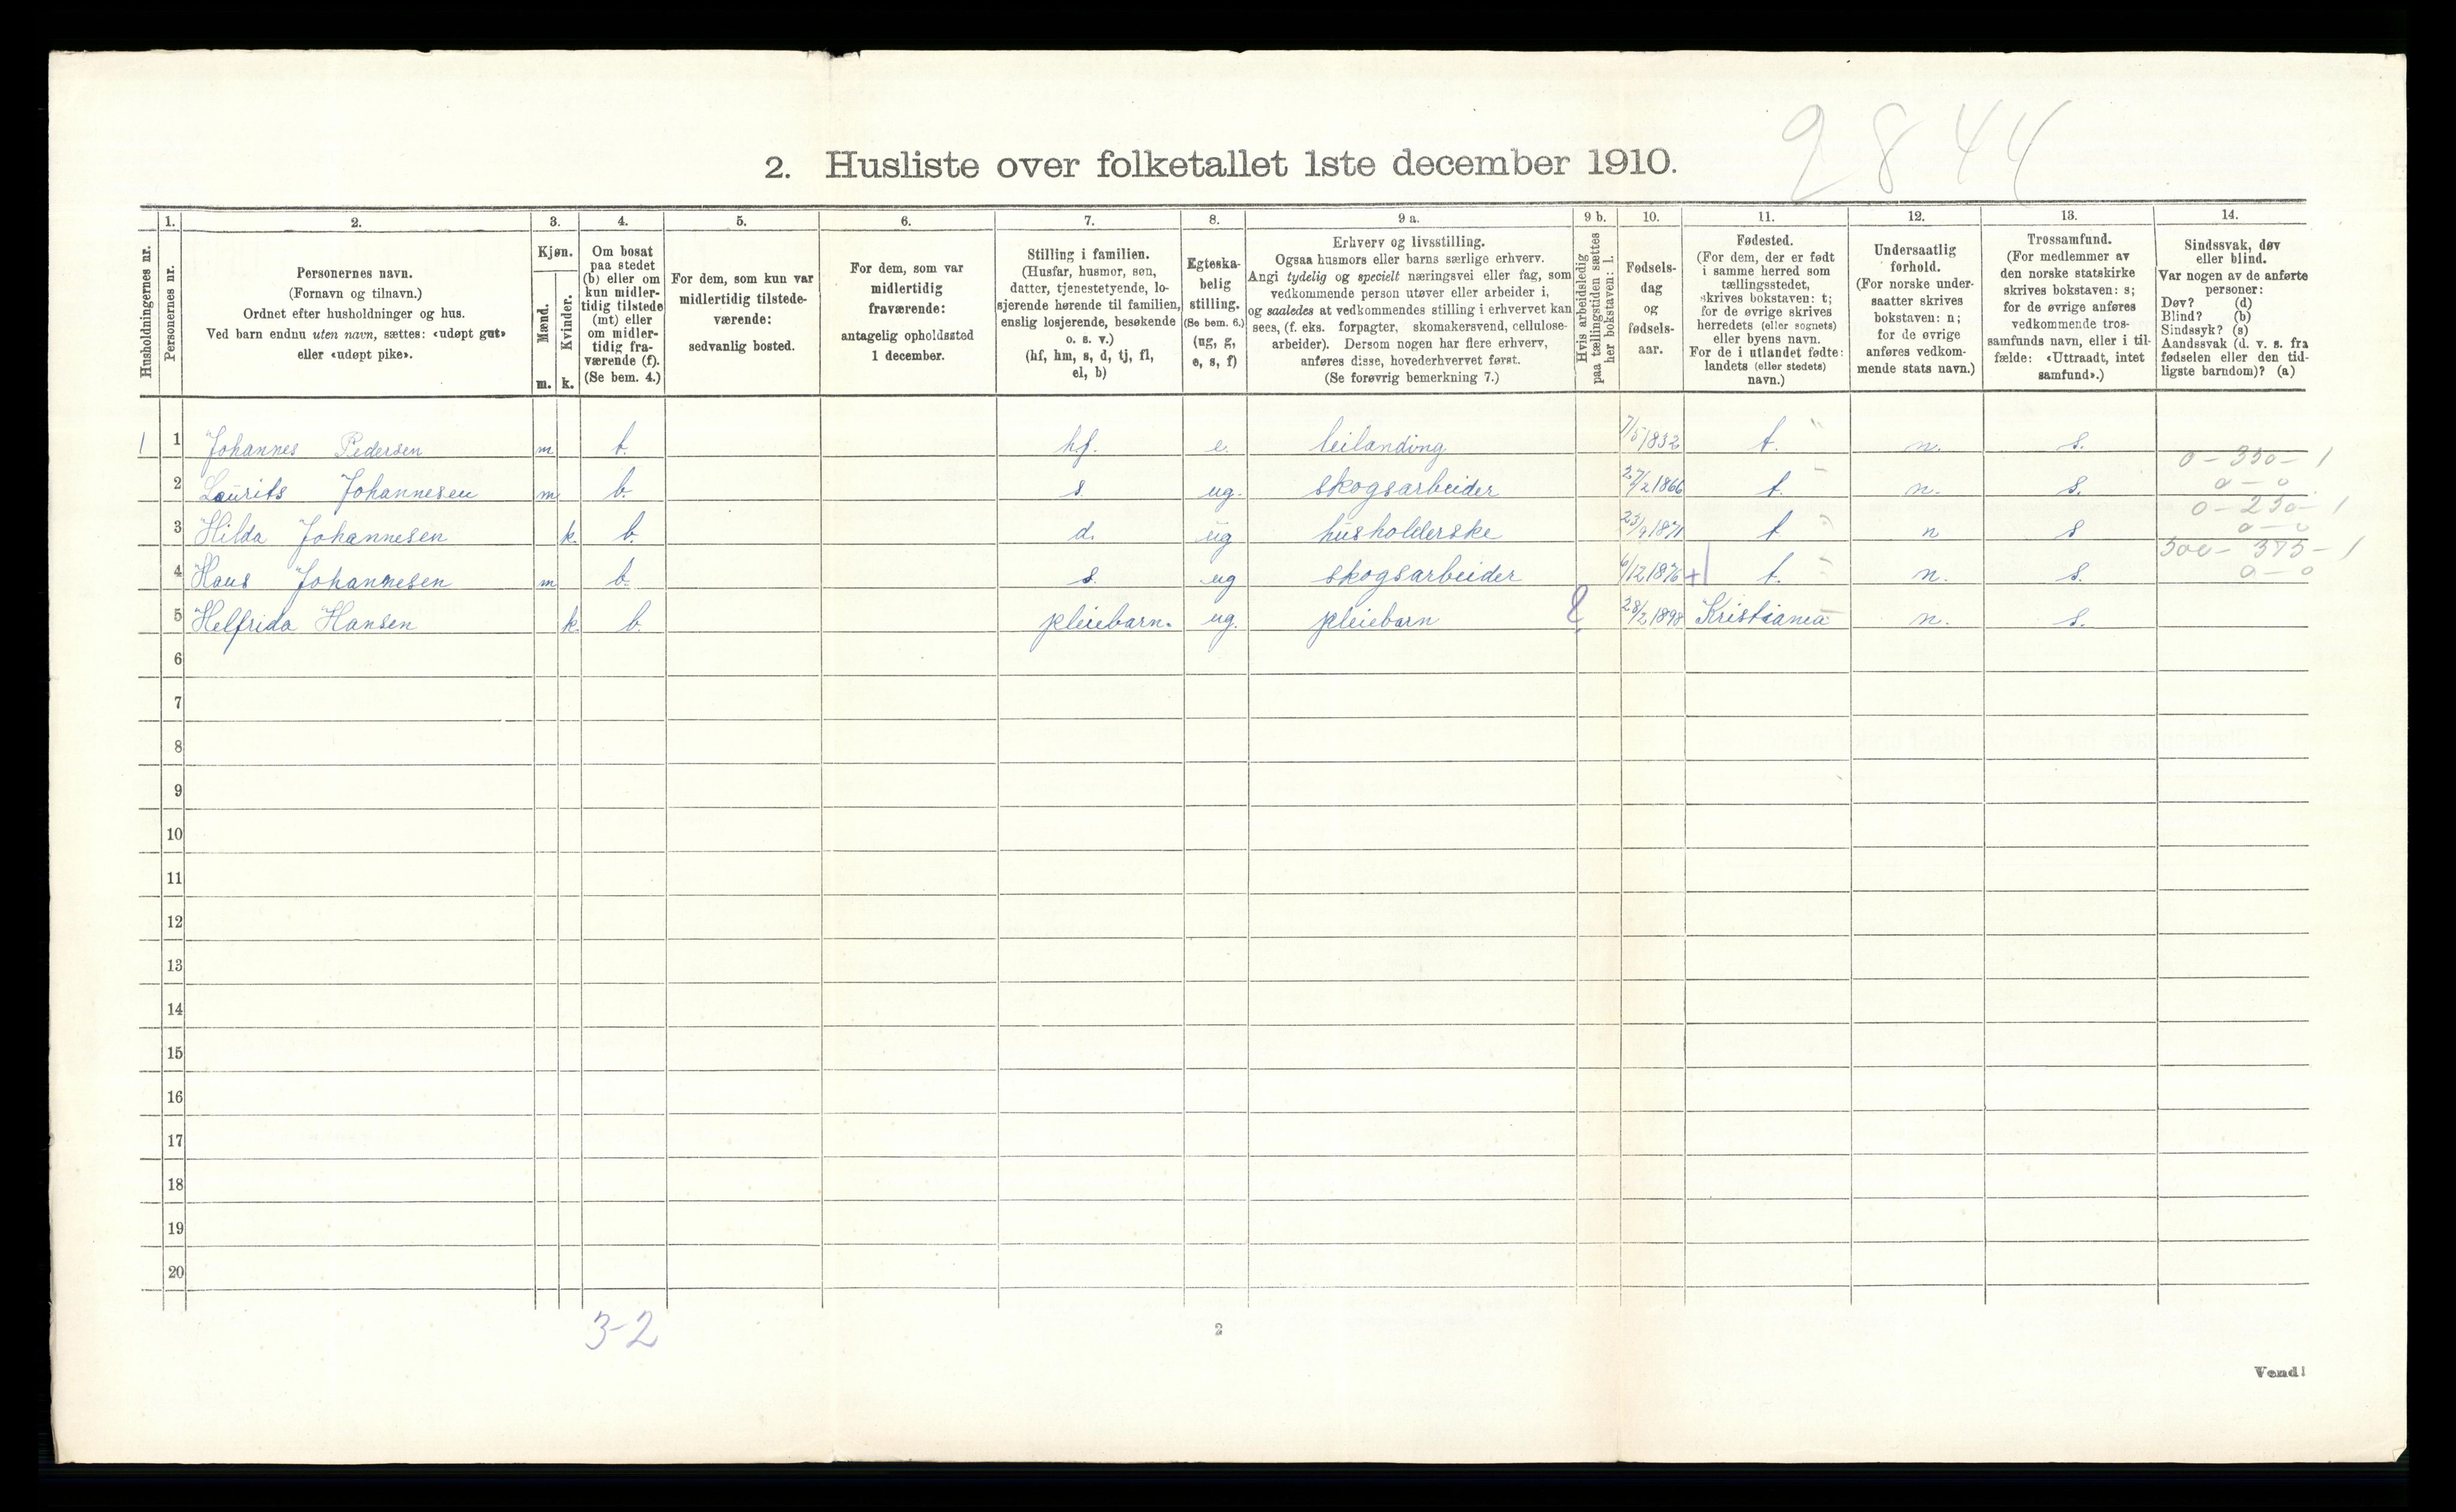 2844
2. Husliste over folketallet 1ste december 1910.
Husholdningernes nr.
1.
Personernes nr.
2.
Personernes navn.
(Fornavn og tilnavn.)
Ordnet efter husholdninger og hus.
Ved barn endnu uten navn, sættes: «udøpt gut»
eller «udøpt pike».
3.
Kjøn.
Mænd.
Kvinder.
m. k.
4.
Om bosat
paa stedet
(b) eller om
kun midler-
tidig tilstede
(mt) eller
om midler-
tidig fra-
værende (f).
(Se bem. 4.)
5.
For dem, som kun var
midlertidig tilstede-
værende:
sedvanlig bosted.
6.
For dem, som var
midlertidig
fraværende:
antagelig opholdssted
1 december.
7.
Stilling i familien.
(Husfar, husmor, søn,
datter, tjenestetyende, lo-
sjerende hørende til familien,
enslig losjerende, besøkende
o. s. v.)
(hf, hm, s, d, tj, fl,
el, b)
8.
Egteska-
belig
stilling.
(Se bem. 6.)
(ug, g,
e, s, f)
9 a.
Erhverv og livsstilling.
Ogsaa husmors eller barns særlige erhverv.
Angi tydelig og specielt næringsvei eller fag, som
vedkommende person utøver eller arbeider i,
og saaledes at vedkommendes stilling i erhvervet kan
sees, (f. eks. forpagter, skomakersvend, cellulose-
arbeider). Dersom nogen har flere erhverv,
anføres disse, hovederhvervet først.
(Se forøvrig bemerkning 7.)
9 b.
Hvis arbeidsledig
paa tællingstiden sættes
her bokstaven: l.
10.
Fødsels-
dag
og
fødsels-
aar.
11.
Fødested.
(For dem, der er født
i samme herred som
tællingsstedet,
skrives bokstaven: t;
for de øvrige skrives
herredets (eller sognets)
eller byens navn.
For de i utlandet fødte:
landets (eller stedets)
navn.)
12.
Undersaatlig
forhold.
(For norske under-
saatter skrives
bokstaven: n;
for de øvrige
anføres vedkom-
mende stats navn.)
13.
Trossamfund.
(For medlemmer av
den norske statskirke
skrives bokstaven: s;
for de øvrige anføres
vedkommende tros-
samfunds navn, eller i til-
fælde: «Uttraadt, intet
samfund».)
14.
Sindssvak, døv
eller blind.
Var nogen av de anførte
personer:
Døv? (d)
Blind? (b)
Sindssyk? (s)
Aandssvak (d. v. s. fra
fødselen eller den tid-
ligste barndom)? (a)
1 1 Johannes Pedersen m b. hf. e. leilending 7/5 1832 t. n. s.
0 - 350 - 1
2 Laurits Johannesen m b. s. ug. skogsarbeider 27/2 1866 t. n. s. 0 - 0
0 - 250 - 1
3 Hilda Johannesen k. b. d. ug husholderske 23/9 1871 t n s 0 - 0
500 - 375 - 1
4 Hans Johannesen m b. s. ug skogsarbeider 6/12 1876 + t. n. s. 0 - 0
5 Helfrida Hansen k. b. pleiebarn. ug. pleiebarn 28/2 1898 Kristiania n. s.
6
7
8
9
10
11
12
13
14
15
16
17
18
19
20
3-2
2
Vend!